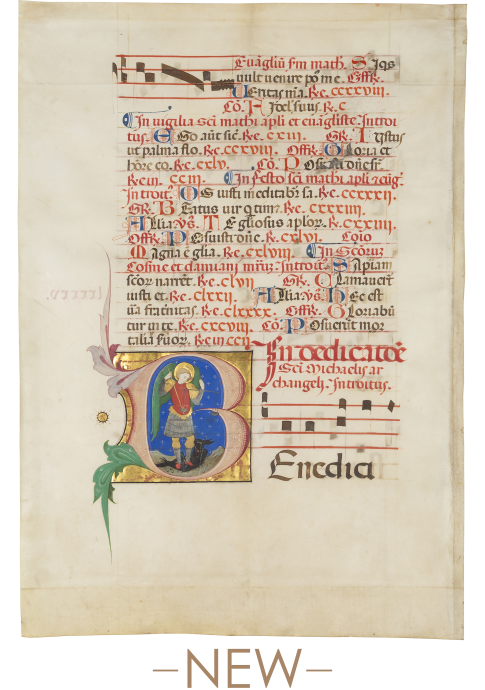 Evãgliũ sm math. Siqs
vult venire pꝰ me. Offr.
Veritas m̃a. Re. cxxxviii.
Cõ. Fidel' suus. R. c
In vigilia scĩ mathi apli et evãgliste. Introi
tus. Ego aũt sic̃. Re. cxii. Gr. Iustus
ut palma flo. Re. ccxviii. Offr. Gloria et
hõre co. Re. cxlv. Cõ. P
Re in. ccii. In festo scĩ mathi apli
Introit. Os iusti meditabr̃ sa. Re. ccxxxxii.
Gr. Beatus vir q tim. Re. cxxxiii.
Allia. vs. Te gl'iosus aplor. R. cxxxviii
Offr. Posuisti dñe. R. cxlvi. Cõio
Magna ẽ glia. Re. cxlvii. In scõrum
Cosme et damiani mr̃um. Introit. Sapiam
scõr narrẽt. Re. clvii Gr. Clamaverũt
iusti et. Re. clxxii. Allia. vs. Hec est
ṽa fraternitas. Re. clxxxx. Offr. Gloriabũ
tur in te. Re. cxcviii. Cõ. Posuerũt mor
talia suor. Re in ccii
In dedicatõe
Scĩ Michaelis ar
changeli. Introitus.
Benedici
–NEW–